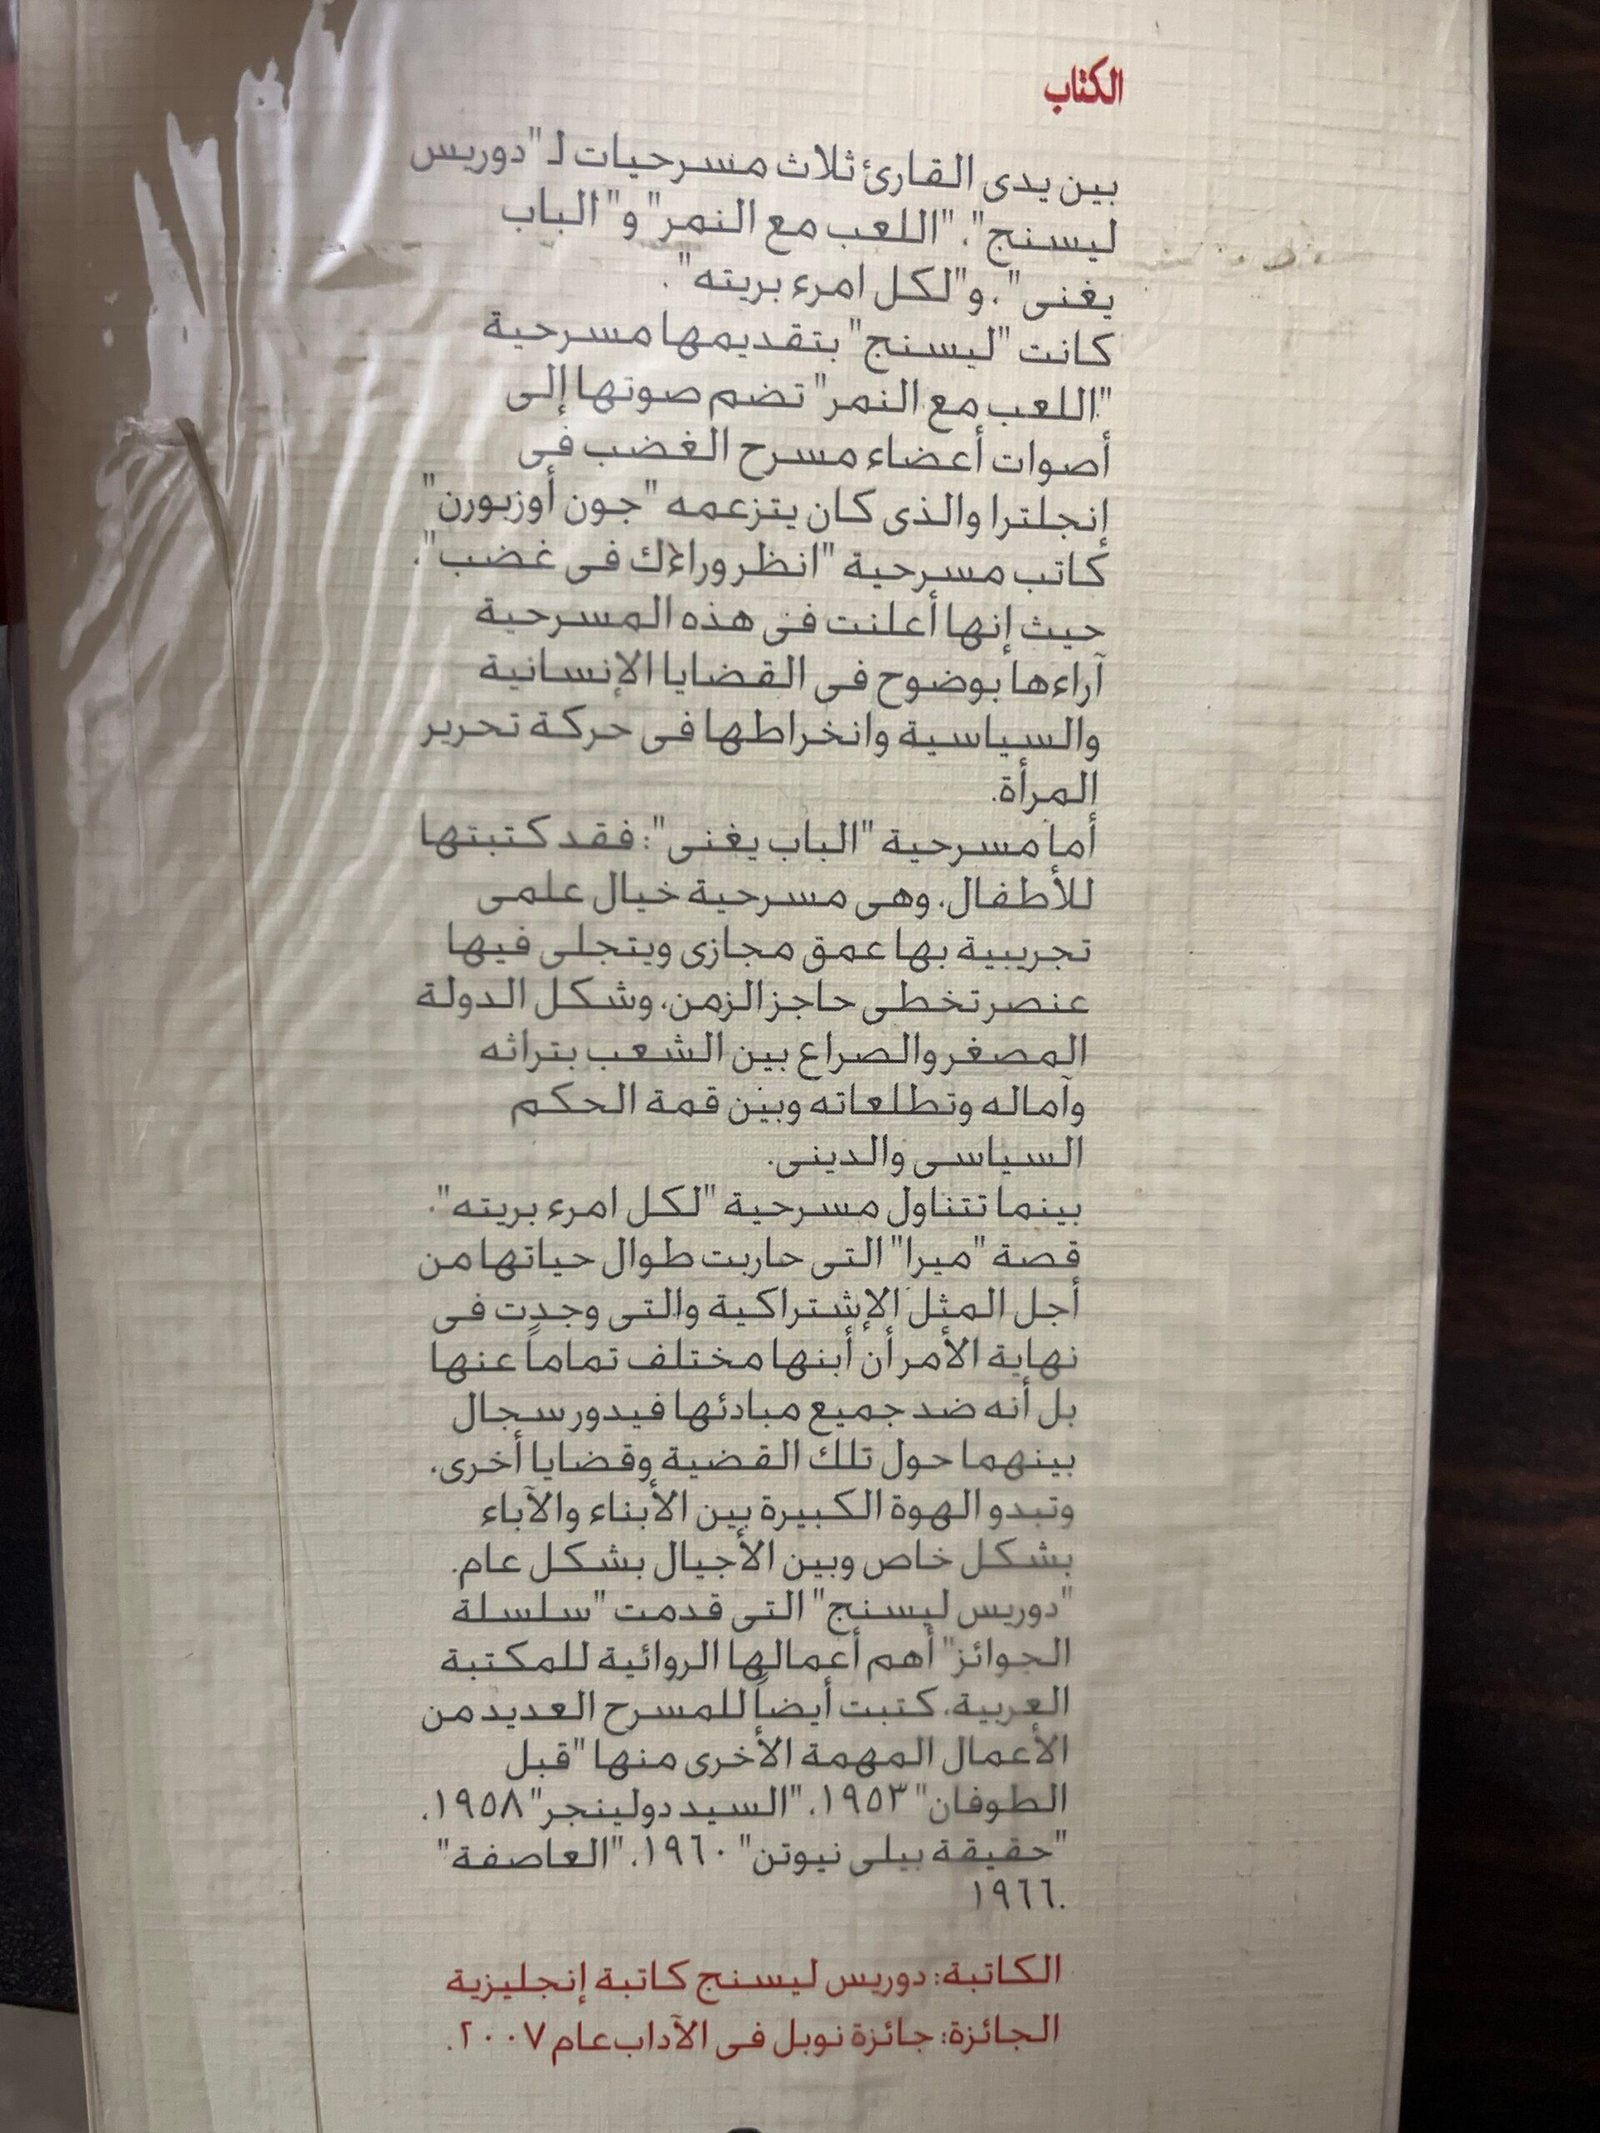 الكتاب
بين يدى القارئ ثلاث مسرحيات لـ "دوريس
ليسنج"، "اللعب مع النمر" و" الباب
يغنى"، و"لكل امرء بريته".
كانت "ليسنج" بتقديمها مسرحية
"اللعب مع النمر" تضم صوتها إلى
أصوات أعضاء مسرح الغضب فى
إنجلترا والذى كان يتزعمه "جون أوزبورن"
كاتب مسرحية "انظر وراءك فى غضب"،
حيث إنها أعلنت فى هذه المسرحية
آراءها بوضوح فى القضايا الإنسانية
والسياسية وانخراطها فى حركة تحرير
المرأة.
أما مسرحية "الباب يغنى": فقد كتبتها
للأطفال، وهى مسرحية خيال علمى
تجريبية بها عمق مجازى ويتجلى فيها
عنصر تخطى حاجز الزمن، وشكل الدولة
المصغر والصراع بين الشعب بتراثه
وآماله وتطلعاته وبين قمة الحكم
السياسى والدينى.
بينما تتناول مسرحية "لكل امرء بريته"،
قصة "ميرا" التى حاربت طوال حياتها من
أجل المثل الإشتراكية والتى وجدت فى
نهاية الأمر أن أبنها مختلف تماماً عنها
بل أنه ضد جميع مبادئها فيدور سجال
بينهما حول تلك القضية وقضايا أخرى،
وتبدو الهوة الكبيرة بين الأبناء والآباء
بشكل خاص وبين الأجيال بشكل عام.
"دوريس ليسنج" التى قدمت "سلسلة
الجوائز" أهم أعمالها الروائية للمكتبة
العربية، كتبت أيضاً للمسرح العديد من
الأعمال المهمة الأخرى منها "قبل
الطوفان" ١٩٥٣، "السيد دولينجر" ١٩٥٨،
"حقيقة بيلى نيوتن" ١٩٦٠، "العاصفة"
١٩٦٦.
الكاتبة: دوريس ليسنج كاتبة إنجليزية
الجائزة: جائزة نوبل فى الآداب عام ٢٠٠٧.